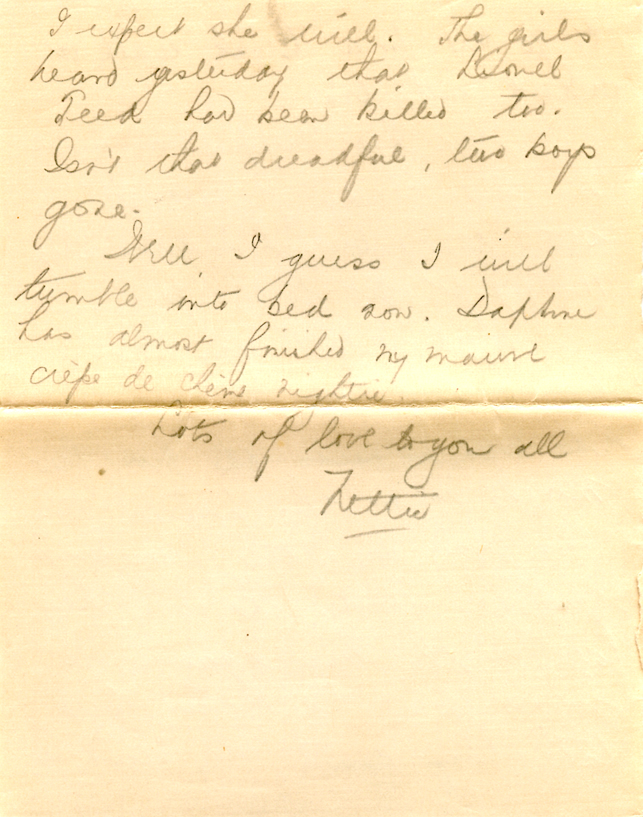 I expect she will. The girls
heard yesterday that Lionel
Teed had been killed too.
Isn't that dreadful, two boys
gone.
Well I guess I will
tumble into bed now. Daphne
has almost finished my mauve
crêpe de chine nightie.
Lots of love to you all
Nettie